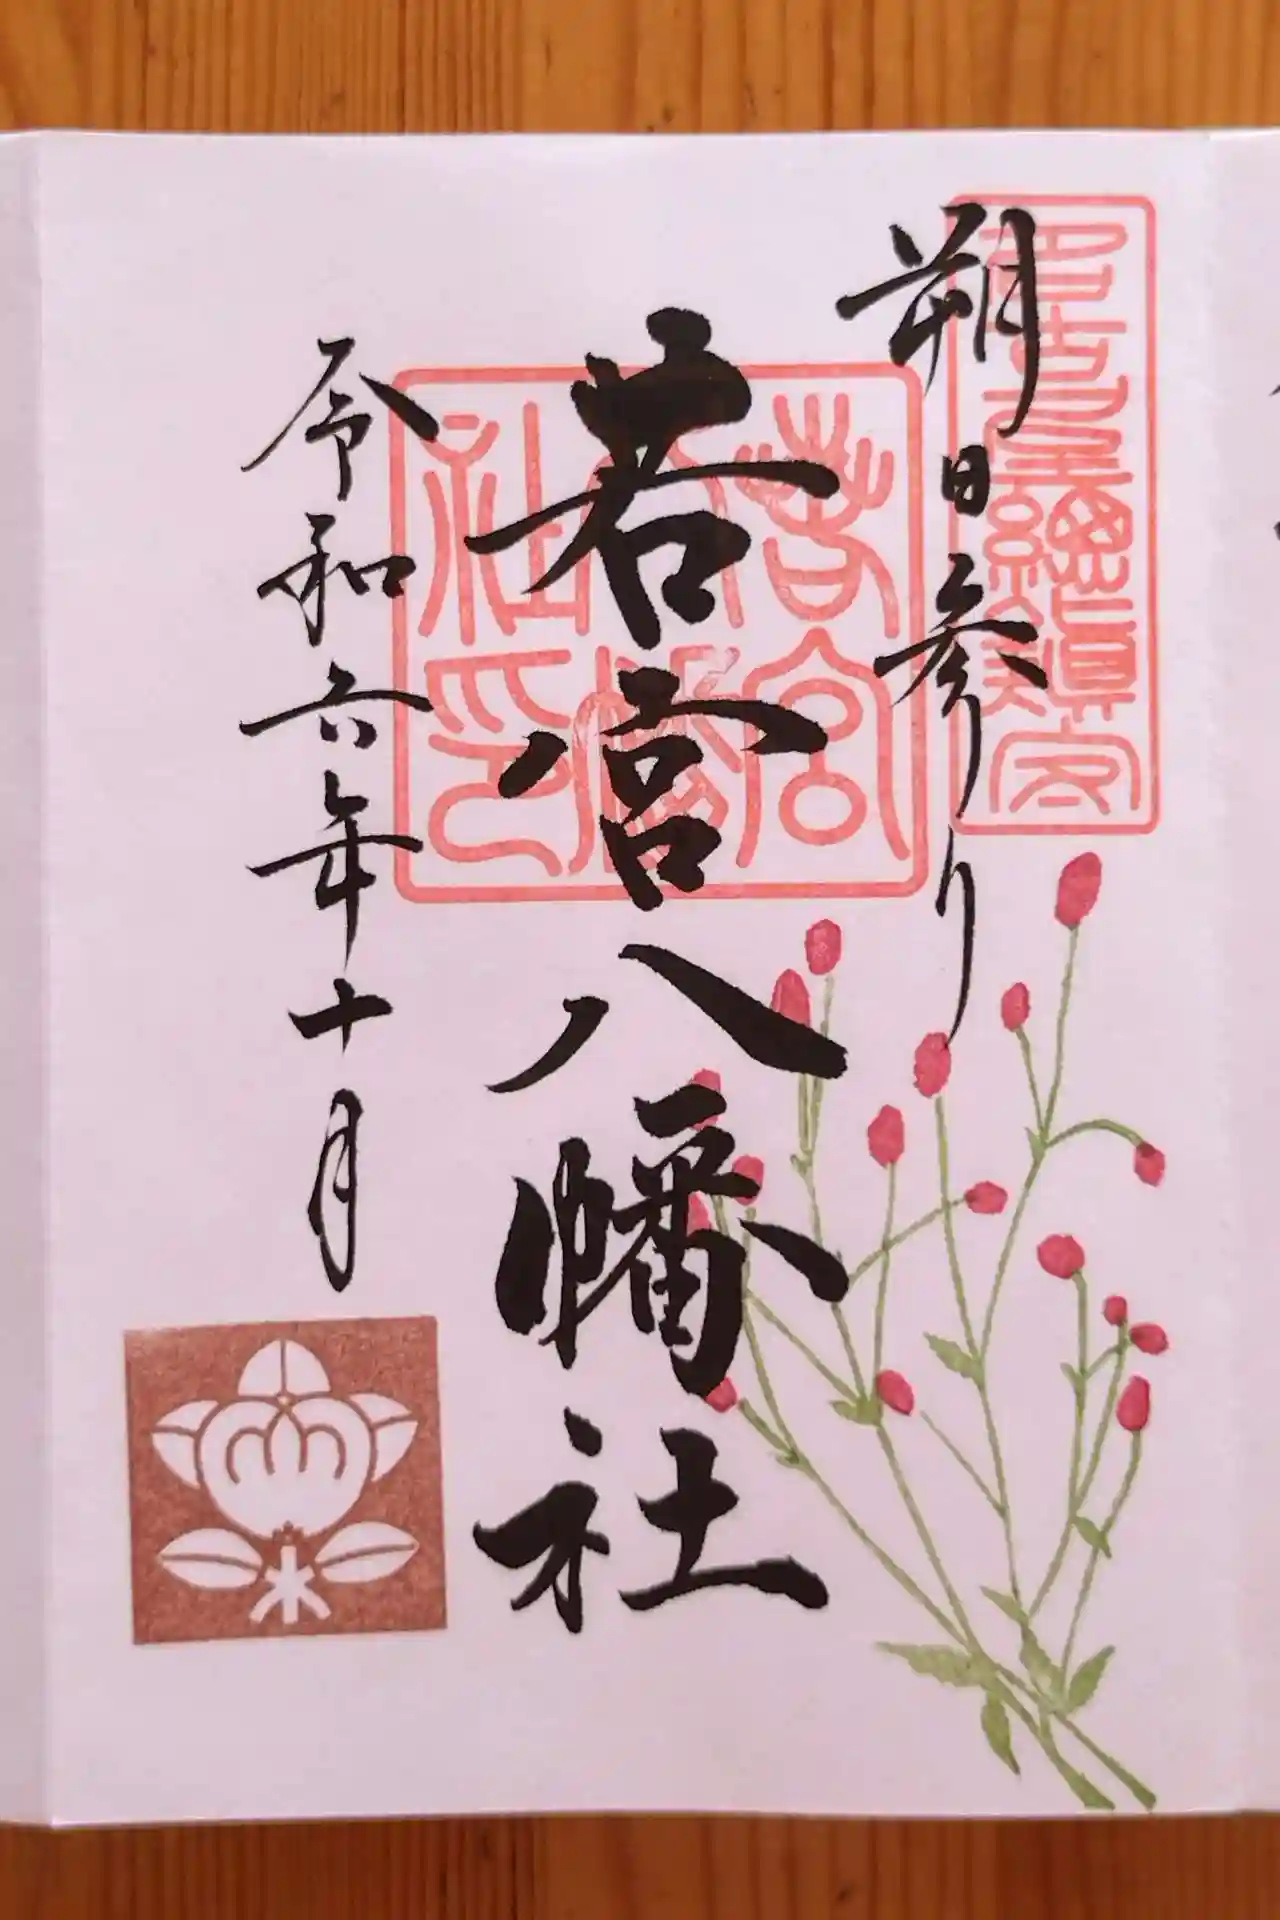 朔日参り
名古屋総鎮守
若宮八幡社
若宮八幡社印
令和六年十月